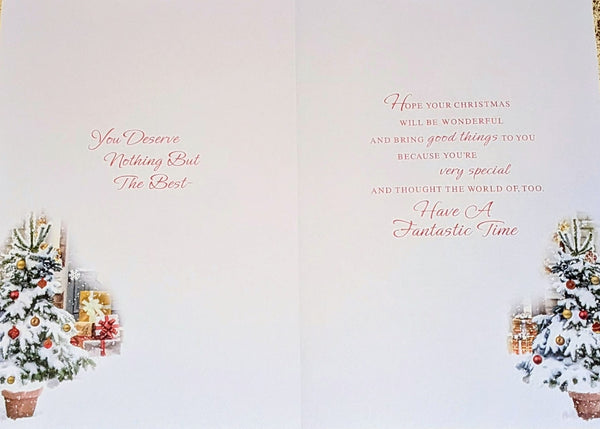 You Deserve
Nothing But
The Best-
HOPE YOUR CHRISTMAS
WILL BE WONDERFUL
AND BRING good things TO YOU
BECAUSE YOU'RE
very special
AND THOUGHT THE WORLD OF, TOO.
Have A
Fantastic Time